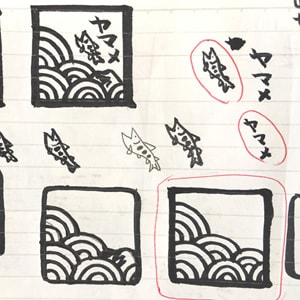 ヤマメ
ヤマメ
ヤマメ